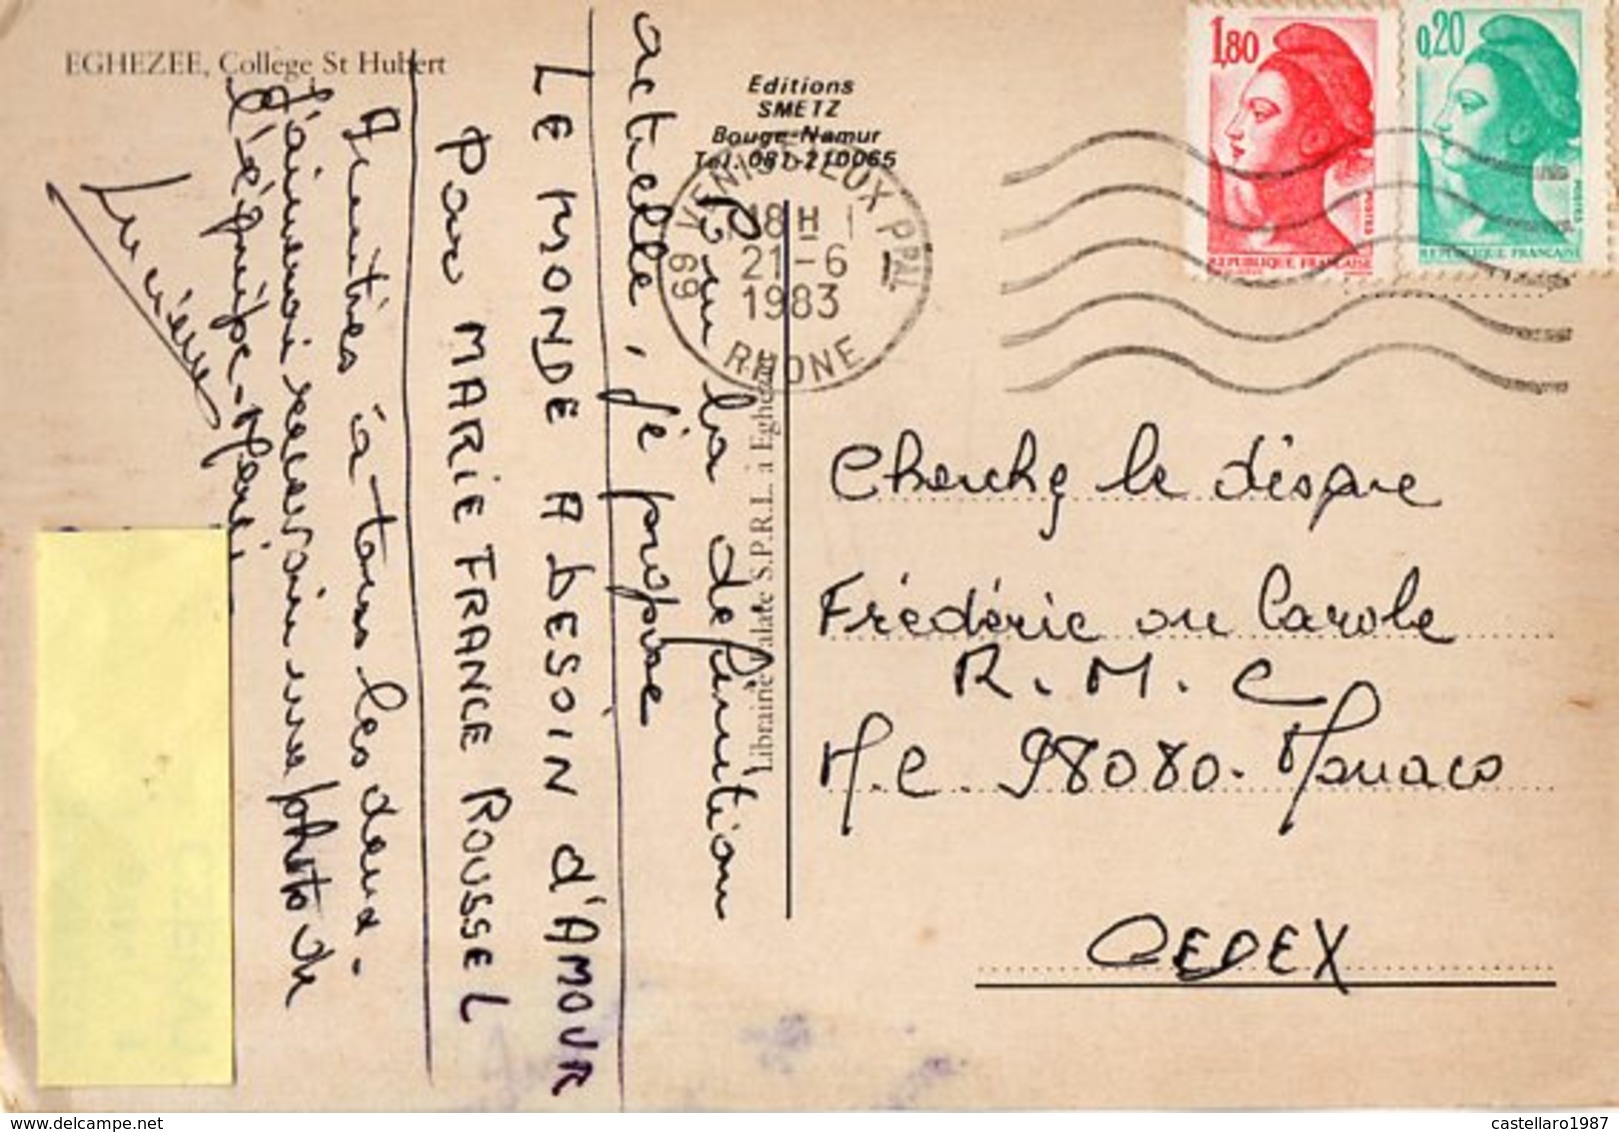 EGHEZEE, Collège St Hubert
Editions
SMETZ
Bouge-Namur
Tel. 081-210065
Librairie Malate S.P.R.L. à Eghezée
Pour la definition
actuelle, je propose
LE MONDE A bESOIN d'AMOUR
Par MARIE FRANCE ROUSSEL
Amitiés à tous les deux.
J'aimerai recevoir une photo de
l'équipe - Merci
Lucienne
1,80
REPUBLIQUE FRANÇAISE
POSTES
0,20
REPUBLIQUE FRANÇAISE
POSTES
VENISSIEUX PPAL
18 H
21-6
1983
69
RHONE
Cherche le disque
Frédéric ou Carole
R.M.C
M.C. 98080. Monaco
CEDEX
castellaro1987